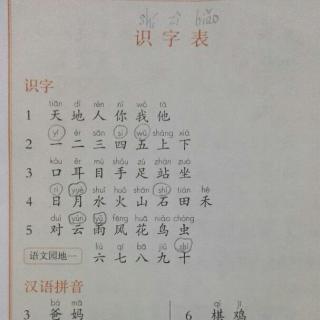 shí zì biǎo
识字表
识字
tiān dì rén nǐ wǒ tā
1 天地人你我他
yī èr sān sì wǔ shàng xià
2 一二三四五上下
kǒu ěr mù shǒu zú zhàn zuò
3 口耳目手足站坐
rì yuè shuǐ huǒ shān shí tián hé
4 日月水火山石田禾
duì yún yǔ fēng huā niǎo chóng
5 对云雨风花鸟虫
liù qī bā jiǔ shí
语文园地一 六七八九十
汉语拼音
bà mā qí jī
3 爸妈 6 棋鸡